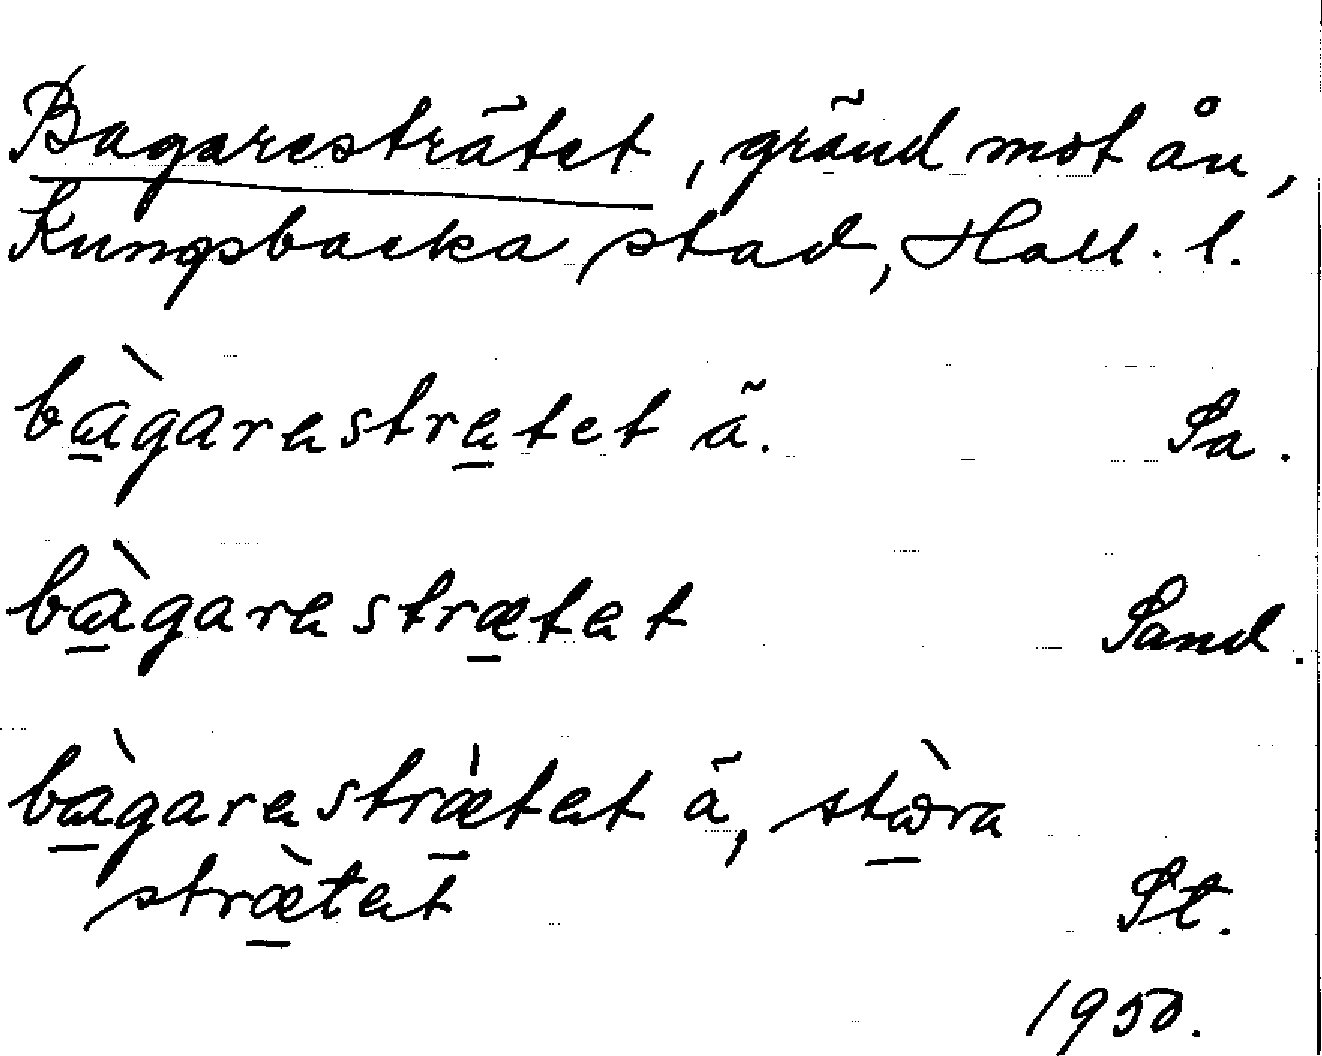 Bagaresträtet, gränd mot ån,
Kungsbacka stad, Hall. l.
bàgarestretet ä. Sa.
bàgarestrætet Sand.
bàgarestrætet ä, stωra
strætet St.
1950.